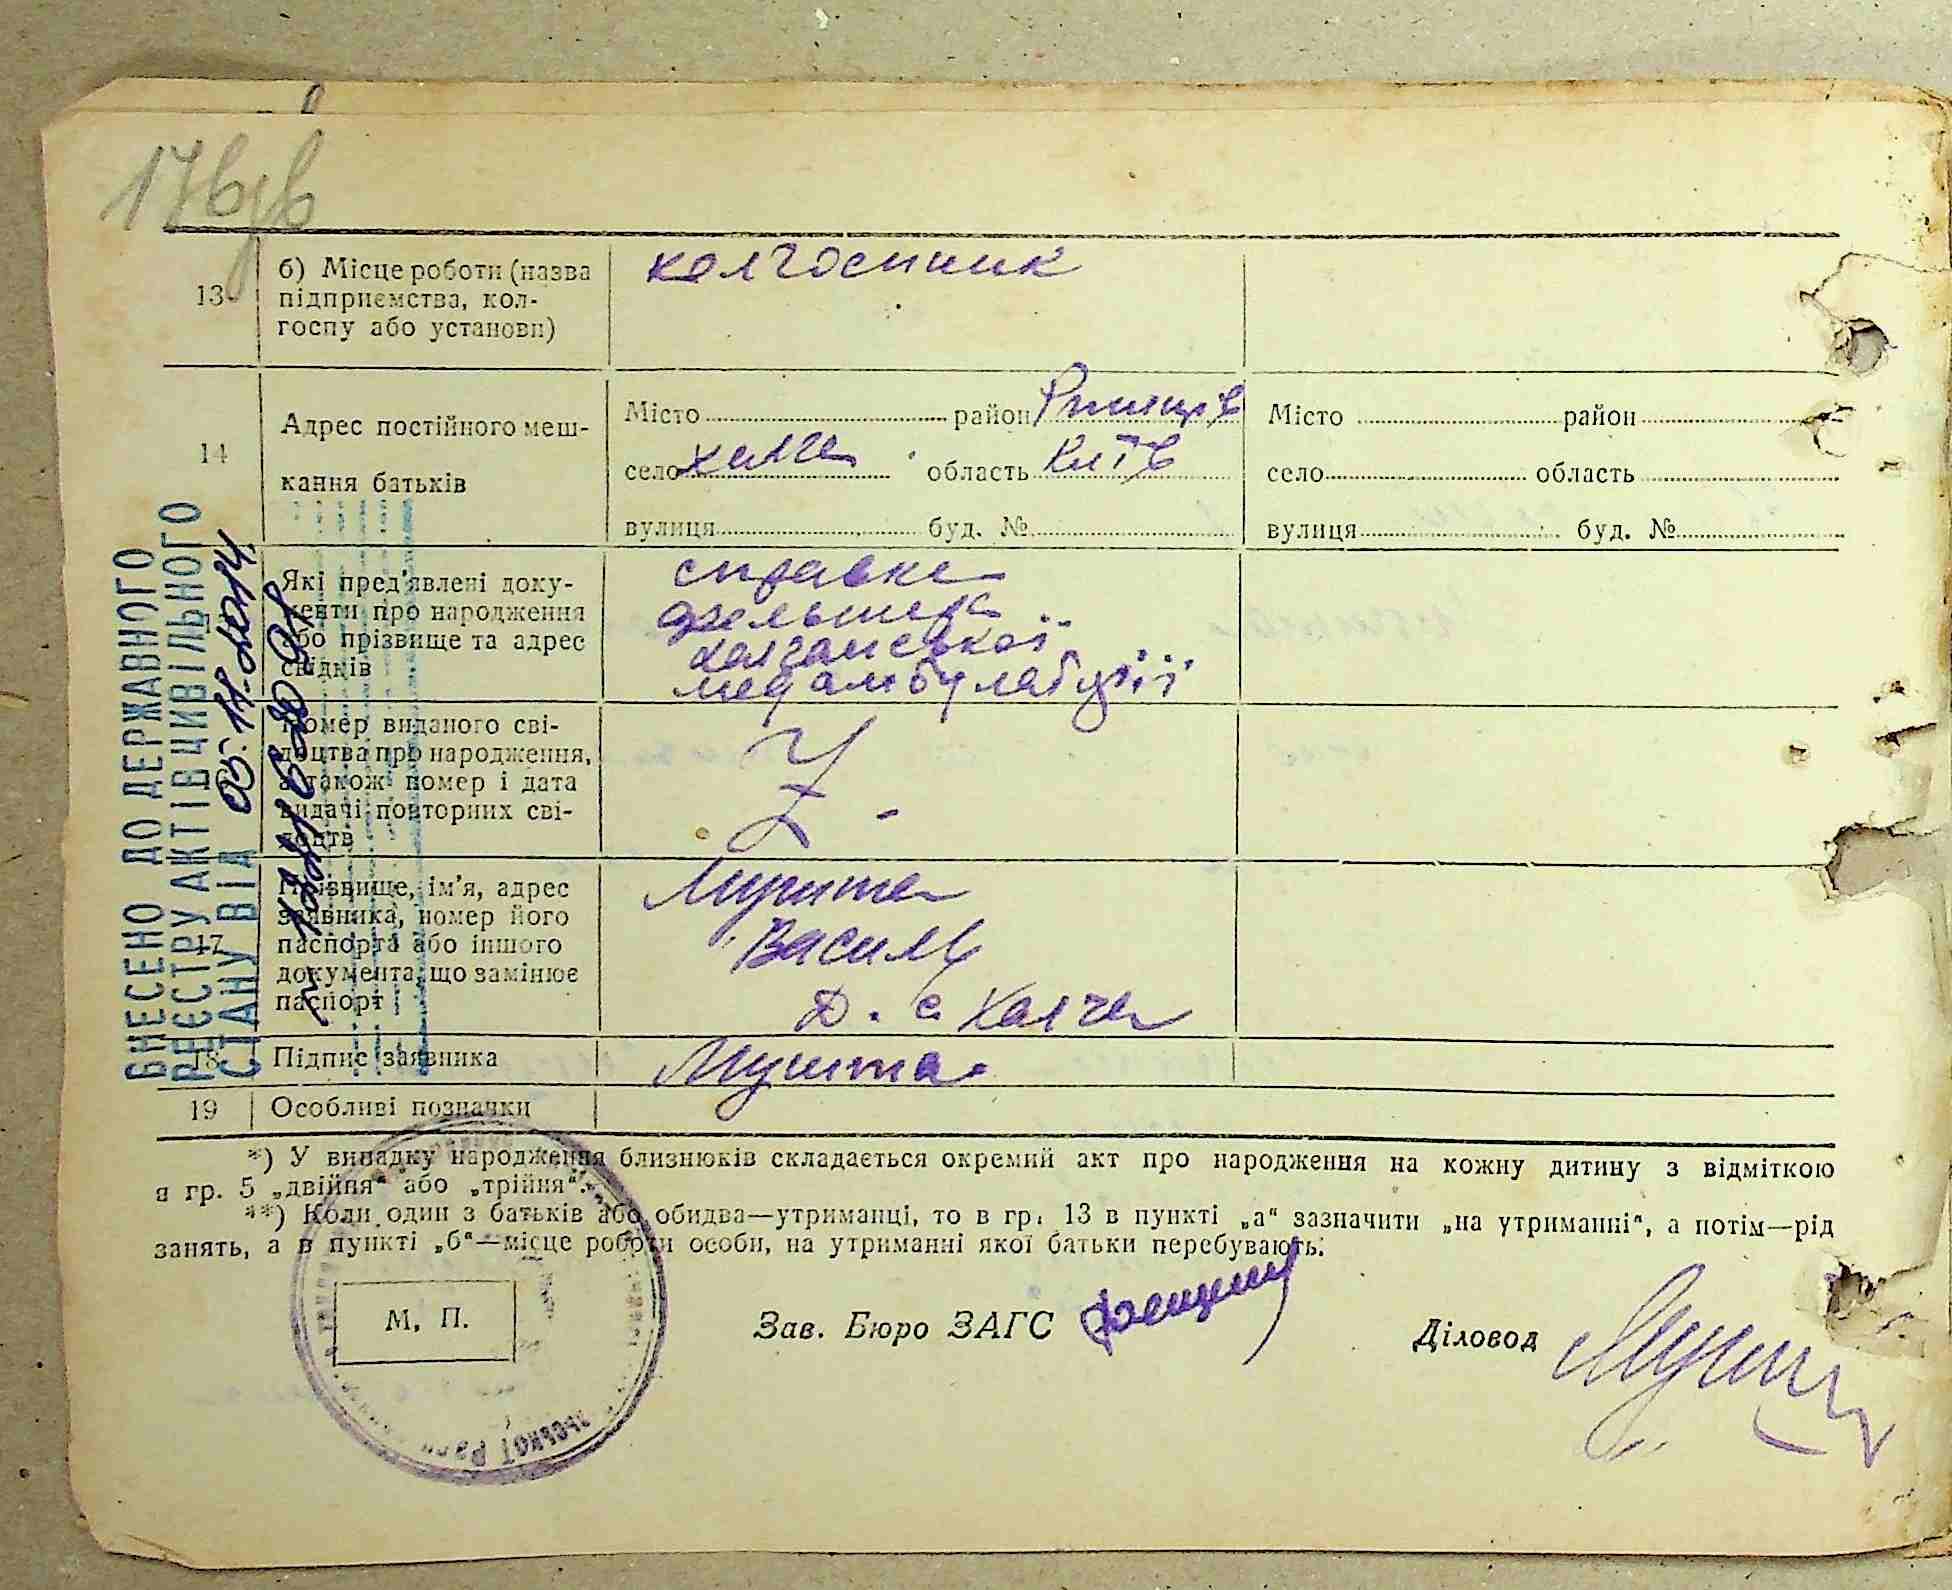 13 б) Місце роботи (назва
підприємства, кол-
госпу або установи)
колгоспник
14 Адрес постійного меш-
кання батьків
Місто район
село Халча область Київ
вулиця буд. №
Місто район
село область
вулиця буд. №
Які пред'явлені доку-
менти про народження
або прізвище та адрес
свідків
справка
фельшера
халчанської
медамбулаторії
Номер виданого сві-
доцтва про народження,
а також номер і дата
видачі повторних сві-
доцтв
17 Прізвище, ім'я, адрес
заявника, номер його
паспорта або іншого
документа, що замінює
паспорт
Василь
с. Халча
18 Підпис заявника
19 Особливі позначки
ВНЕСЕНО ДО ДЕРЖАВНОГО
РЕЄСТРУ АКТІВ ЦИВІЛЬНОГО
СТАНУ ВІД 05.11.2014
*) У випадку народження близнюків складається окремий акт про народження на кожну дитину з відміткою
в гр. 5 „двійня“ або „трійня“.
**) Коли один з батьків або обидва—утриманці, то в гр. 13 в пункті „а“ зазначити „на утриманні“, а потім—рід
занять, а в пункті „б“—місце роботи особи, на утриманні якої батьки перебувають.
М. П.
Зав. Бюро ЗАГС
Діловод